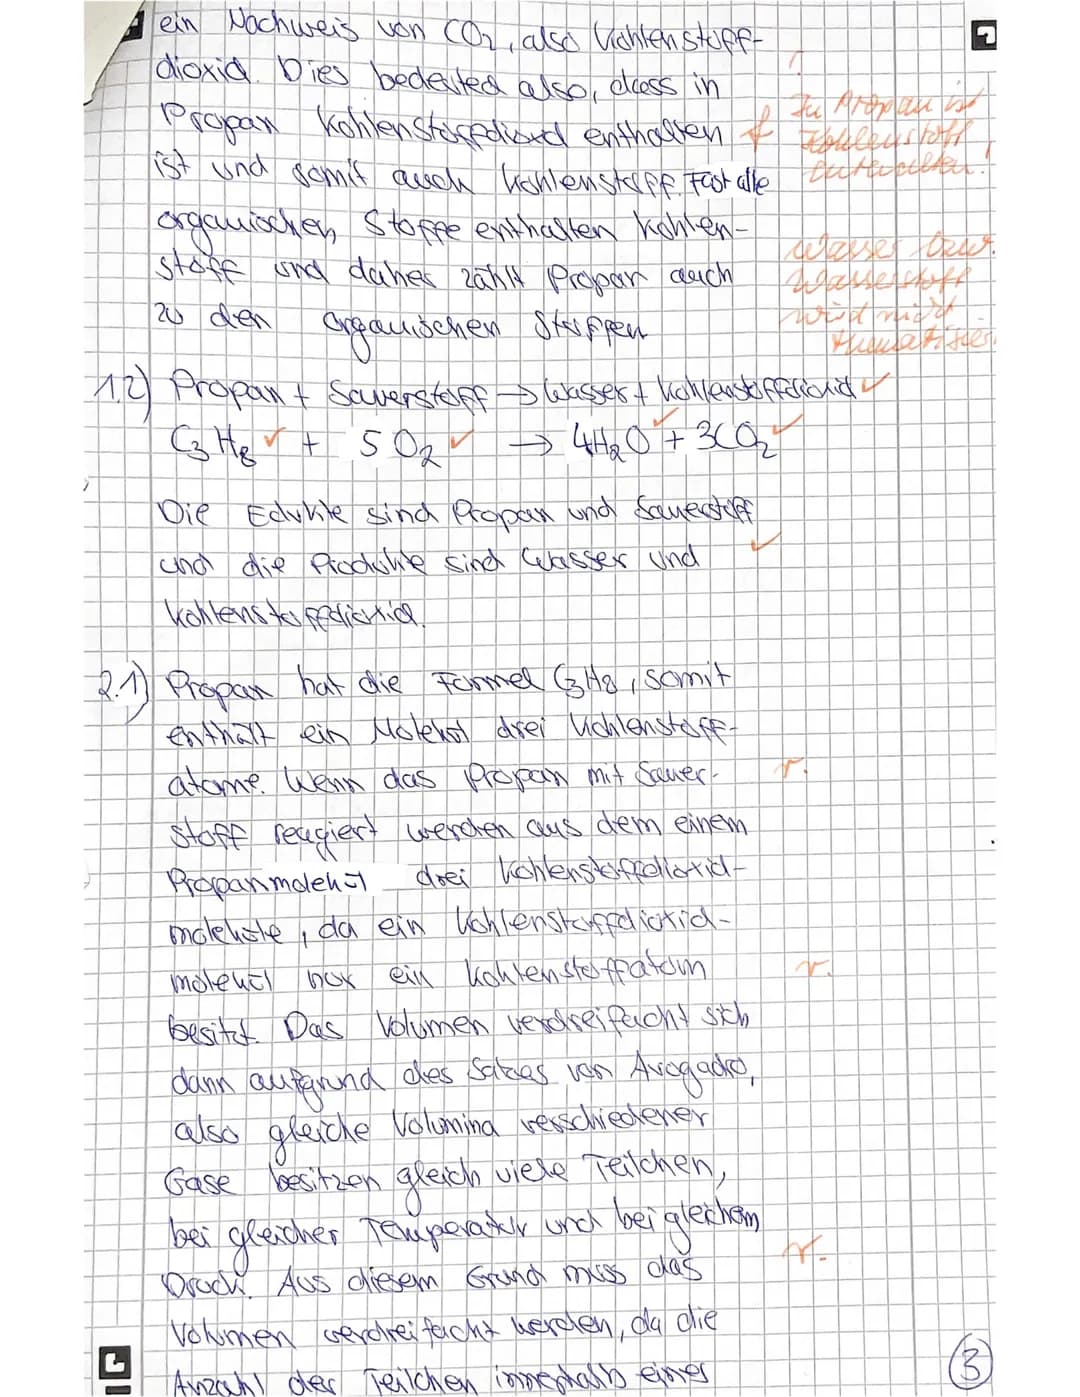 ein Nachweis von CO2, also Kohlenstoff-
dioxid. Dies bedeuted also, dass in
Propan Kohlenstoffdioxid enthalten f In Propan ist
Kohlenstoff
enthalten!
ist und somit auch Kohlenstoff. Fast alle
organischen Stoffe enthalten Kohlen-
stoff und daher zählt Propan auch
zu den organischen Stoffen
Wasser bzw.
Wasserstoff
wird nicht
thematisiert
1.2) Propan + Sauerstoff → Wasser + Kohlenstoffdioxid ✓
C3H8 ✓ + 5 O2 ✓ → 4H2O ✓ + 3CO2 ✓
Die Edukte sind Propan und Sauerstoff
und die Produkte sind Wasser und ✓
Kohlenstoffdioxid.
2.1) Propan hat die Formel C3H8, somit
enthält ein Molekül drei Kohlenstoff-
atome. Wenn das Propan mit Sauer- r.
stoff reagiert werden aus dem einem
Propanmolekül drei Kohlenstoffdioxid-
moleküle, da ein Kohlenstoffdioxid-
molekül nur ein Kohlenstoffatom r.
besitzt. Das Volumen verdreifacht sich
dann aufgrund des Satzes von Avogadro,
also gleiche Volumina verschiedener
Gase besitzen gleich viele Teilchen,
bei gleicher Temperatur und bei gleichem
Druck. Aus diesem Grund muss das r.
Volumen verdreifacht werden, da die
Anzahl der Teilchen innerhalb eines
3